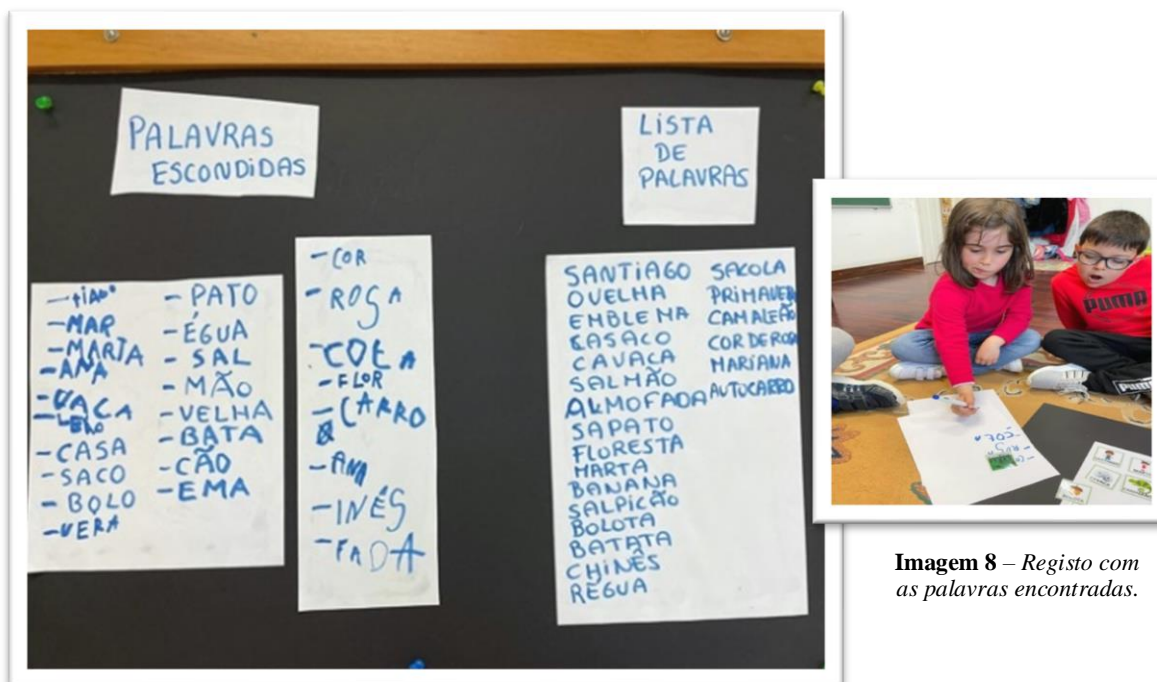 PALAVRAS
ESCONDIDAS
LISTA
DE
PALAVRAS
-TIAGO
-MAR
-MARTA
-ANA
-VACA
-LEÃO
-CASA
-SACO
-BOLO
-VERA
-PATO
-ÉGUA
-SAL
-MÃO
-VELHA
-BATA
-CÃO
-EMA
-COR
-ROSA
-COLA
-FLOR
-CARRO
-ANA
-INÊS
-FADA
SANTIAGO
OVELHA
EMBLEMA
CASACO
CAVACA
SALMÃO
ALMOFADA
SAPATO
FLORESTA
MARTA
BANANA
SALPICÃO
BOLOTA
BATATA
CHINÊS
RÉGUA
SACOLA
PRIMAVERA
CAMALEÃO
COR DE ROSA
MARIANA
AUTOCARRO
PUMA
PUMA
Imagem 8 – Registo com
as palavras encontradas.